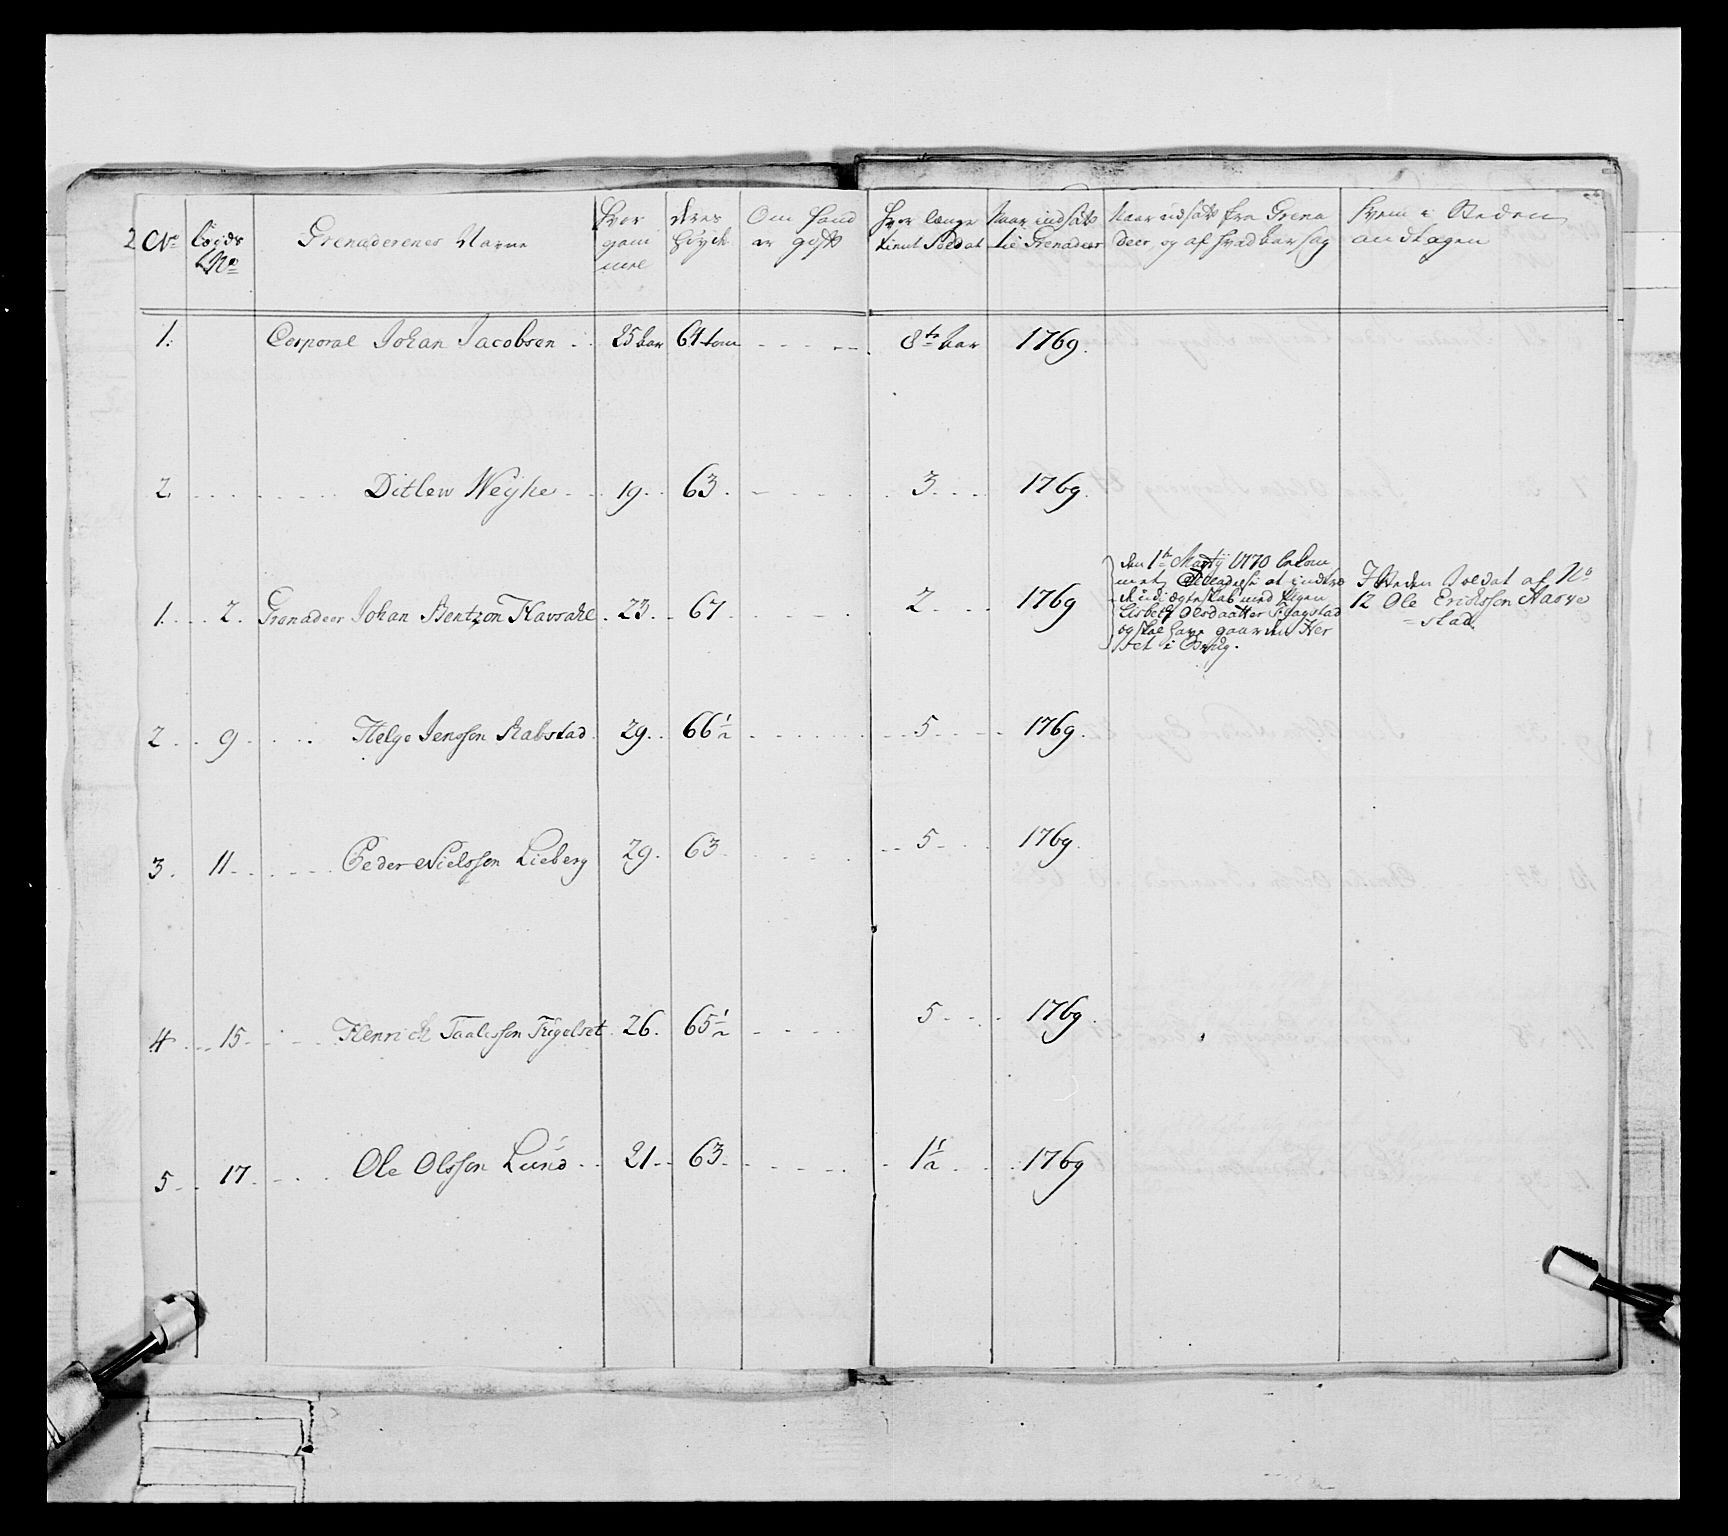 2 No Lægds No Grenaderenes Navne Hvor gam mel deres Høyde Om hand er gift Hvor længe tient Soldat Naar indsatt til Grenadeer Naar udsatt fra Grena deer, og af hvad aarsag Hvem i Steden andtagen
1. Corporal Johan Jacobsen 25 aar 64 tom 8te aar 1769.
2. Ditlew Weyhe 19. 63. 3. 1769.
1. 2. Grenadeer Johan Bentzon Havsahl. 23. 67. 2. 1769
den 1te Martij 1770 bekom
met Tilladelse at indtræ
de udi ægteskab med Pigen
Lisbeth Olsdaatter
og skal have gaarden
set i Brug.
J Steden Soldat af No
12 Ole Erichssen
stad.
2. 9. Helge Jenssen Rabstad. 29. 66 1/2 5 1769.
3. 11. Peder Nielssen Lieberg 29. 63 5 1769.
4. 15. Henrich 26. 65 1/2 5 1769.
5. 17. Ole Olssen Lund 21. 63. 1 1/2 1769